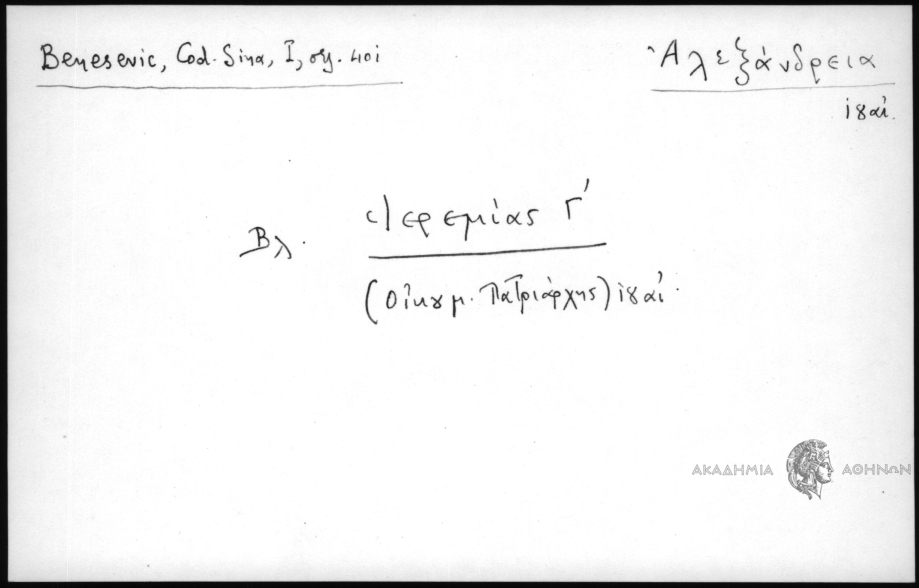 Benesevic, Cod. Sina, I, σγ. 401
Ἀλεξάνδρεια
ιγαί.
Βλ. Ἱερεμίας Γ'
(Οἰκουμ. Πατριάρχης) ιγαί.
ΑΚΑΔΗΜΙΑ ΑΘΗΝΩΝ